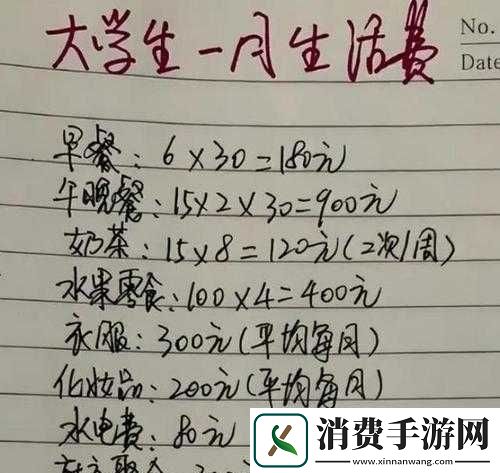 大学生一月生活费
No.
Date
早餐：6×30=180元
午晚餐：15×2×30=900元
奶茶：15×8=120元(2次/周)
水果零食：100×4=400元
衣服：300元(平均每月)
化妆品：200元(平均每月)
水电费：80元
消费手游网
www.xinnanwang.com